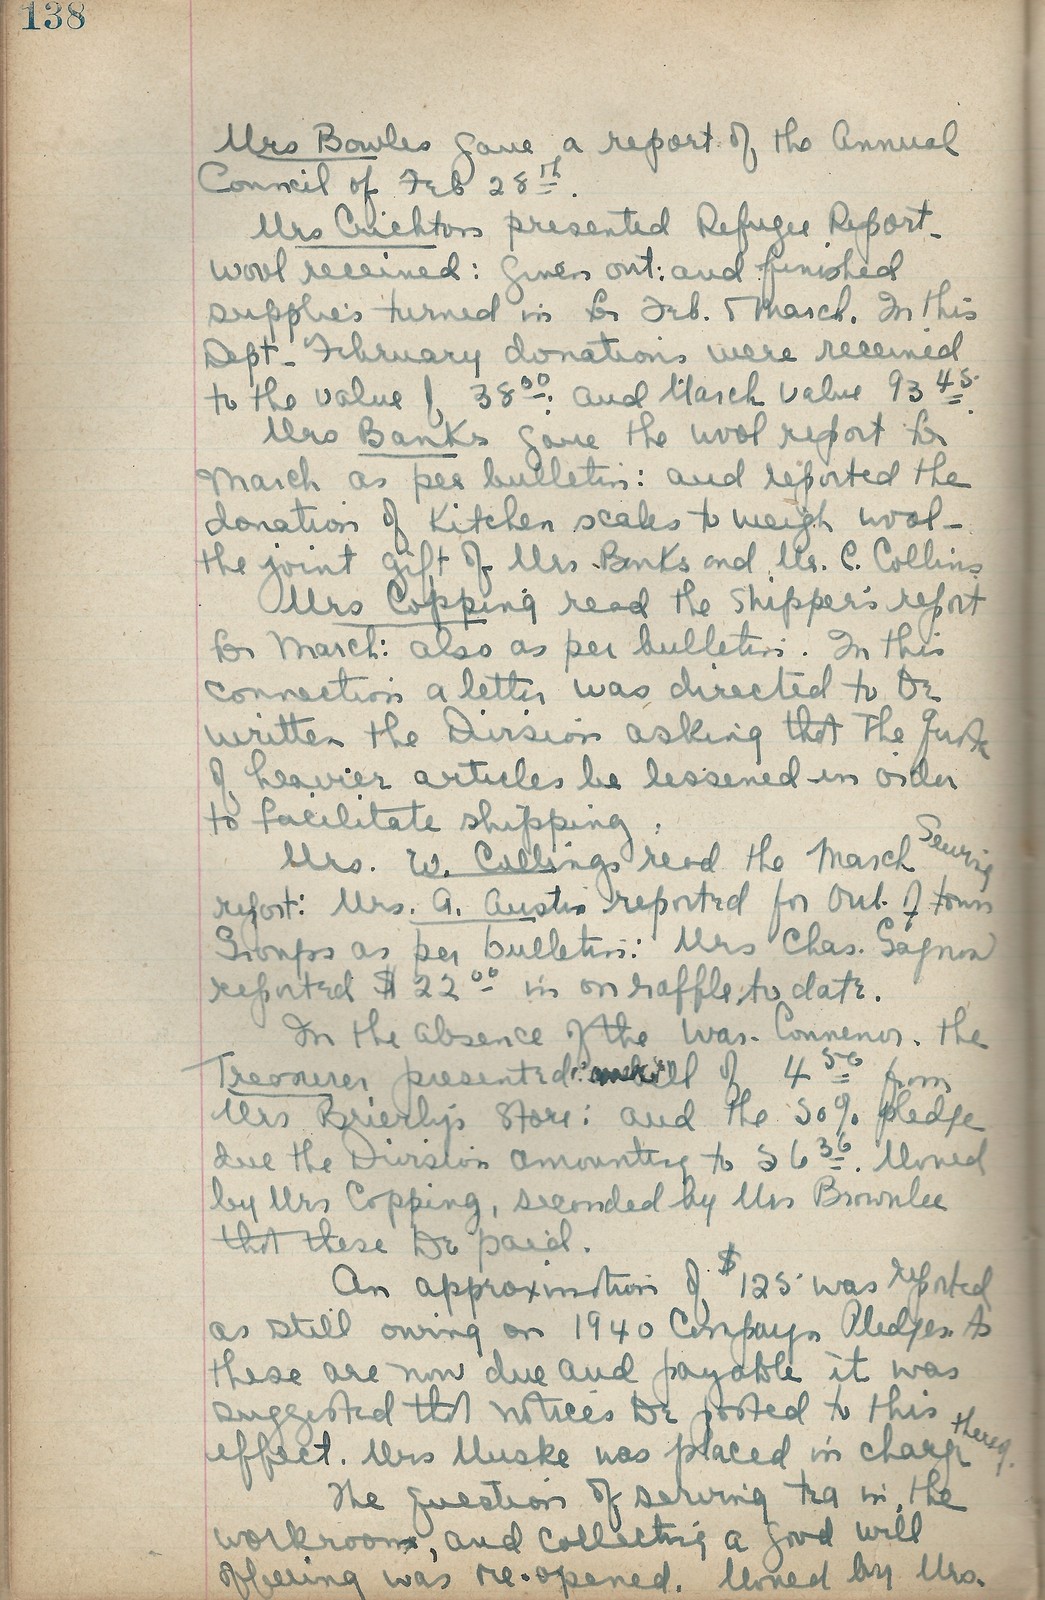 138
Mrs Bowles gave a report of the Annual
Council of Feb 28th.
Mrs Crichton presented Refugee Report-
wool received: given out: and finished
supplies turned in for Feb. & March. In this
Dept- February donations were received
to the value of 38.00: and March value 93.45.
Mrs Banks gave the wool report for
March as per bulletin: and reported the
donation of Kitchen scales to weigh wool-
the joint gift of Mrs Banks and Mr. C. Collins
Mrs Copping read the shipper's report
for March: also as per bulletin. In this
connection a letter was directed to be
written the Division asking that the quota
of heavier articles be lessened in order
to facilitate shipping.
Mrs. W. Cullings read the March Sewing
report: Mrs. A. Austin reported for Out of town
Groups as per bulletin: Mrs Chas. Gagnon
reported $22.00 in on raffle to date.
In the absence of the Was. Convenor. the
Treasurer presented bill of 4.50 from
Mrs Brierly's Store: and the 50% pledge
due the Division amounting to 56.36. Moved
by Mrs Copping, seconded by Mrs Brownlee
that these be paid.
An approximation of $125 was reported
as still owing on 1940 Campaign Pledges. As
these are now due and payable it was
suggested that notices be posted to this
effect. Mrs Muske was placed in charge thereof.
The question of serving tea in the
workroom, and collecting a good will
offering was re-opened. Moved by Mrs.